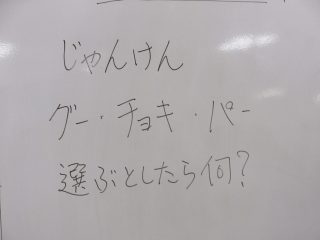 じゃんけん
グー・チョキ・パー
選ぶとしたら何?